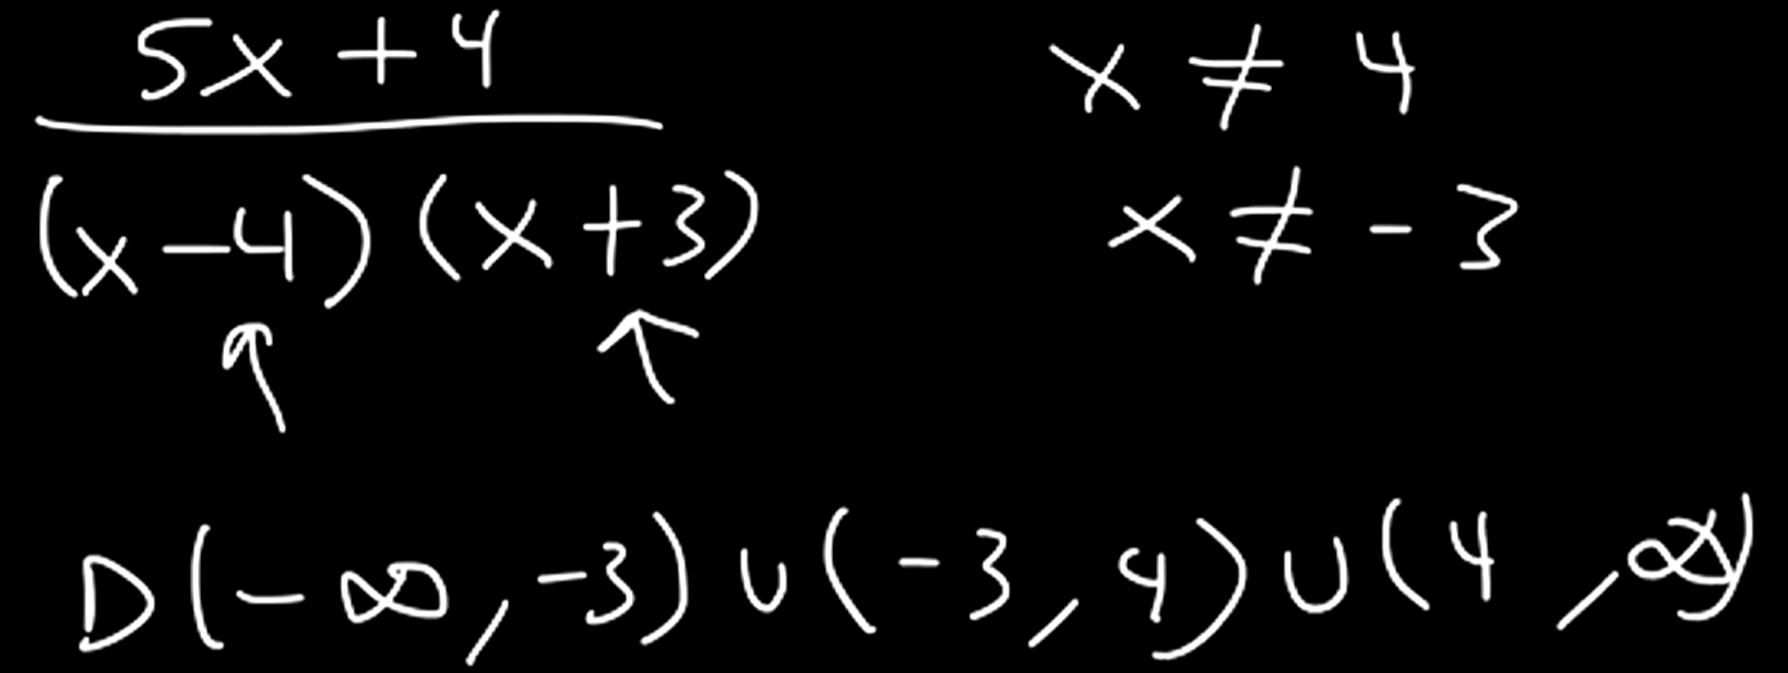 5x + 4
(x - 4) (x + 3)
x ≠ 4
x ≠ - 3
D (- ∞, -3) ∪ (-3, 4) ∪ (4, ∞)